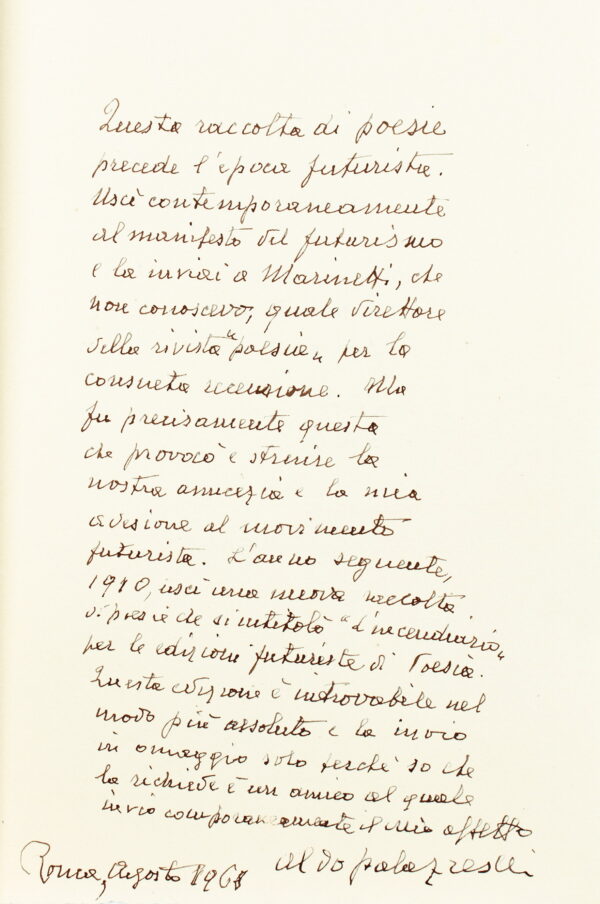 Questa raccolta di poesie
precede l'epoca futurista.
Uscì contemporaneamente
al manifesto del futurismo
e la inviai a Marinetti, che
non conoscevo, quale direttore
della rivista "poesia" per la
consueta recensione. Ma
fu precisamente questa
che provocò e strinse la
nostra amicizia e la mia
adesione al movimento
futurista. L'anno seguente,
1910, uscì una nuova raccolta
di poesie che si intitolò "L'incendiario"
per le edizioni futuriste di Poesia.
Questa edizione è introvabile nel
modo più assoluto e la invio
in omaggio solo perché so che
la richiede è un amico al quale
invio comporaneamente il mio affetto
aldo palazzeschi
Roma, Agosto 1961